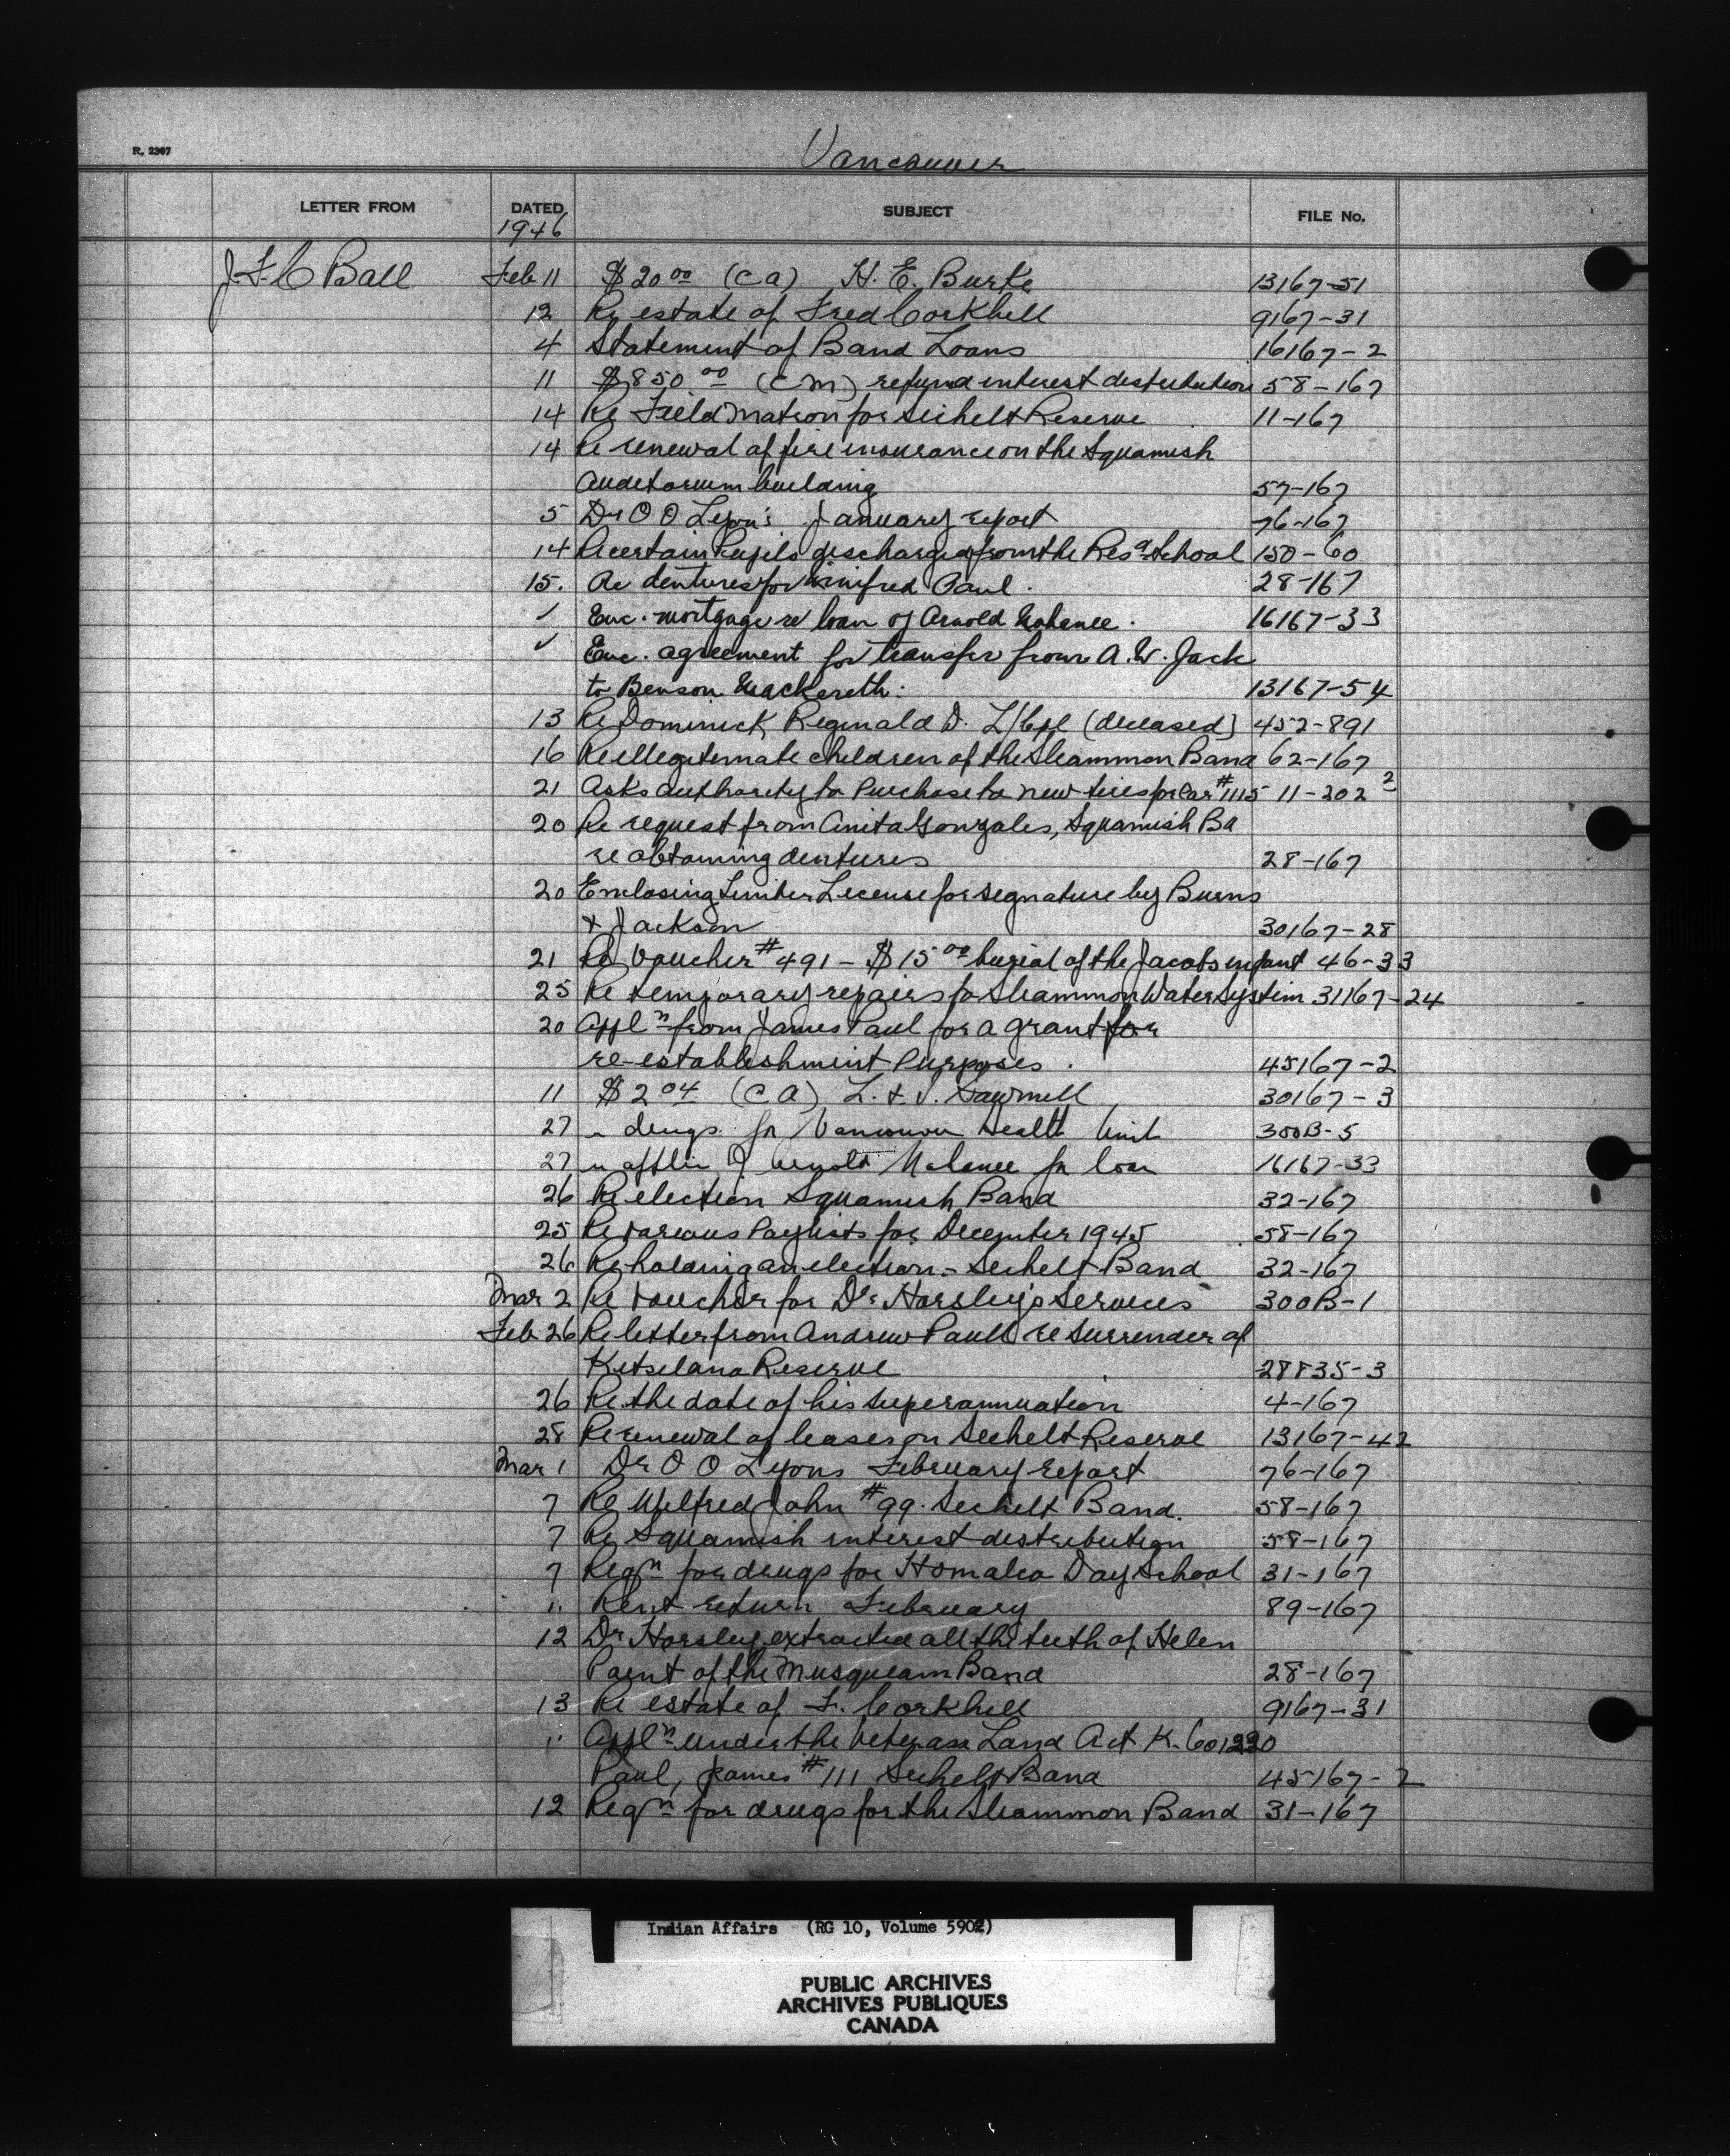 R. 2307
Vancouver
LETTER FROM DATED SUBJECT FILE No.
1946
J. F. C Ball Feb 11 $20 00 (CA) H. E. Burke 13167-51
12 Re estate of Fred Corkhill 9167-31
4 Statement of Band Loans 16167-2
11 $850 00 (CM) refund interest distribution 58-167
14 Re Field Matron for Sechelt Reserve 11-167
14 Re renewal of fire insurance on the Squamish
Auditorium building 57-167
5 Dr O O Lyon's January report 76-167
14 Re certain Pupils discharged from the Res School 150-60
15. Re dentures for Winifred Paul. 28-167
✓ Enc. mortgage re loan of Arnold 16167-33
✓ Enc. agreement for transfer from A. W. Jack
to Benson Mackereth. 13167-54
13 Re Dominick, Reginald D. L/Cpl (deceased) 452-891
16 Re illegitimate children of the Sliammon Band 62-167
21 Asks authority to Purchase to new tires for Car #1115 11-202 2
20 Re request from Anita Gonzales, Squamish Ba
re obtaining dentures 28-167
20 Enclosing Timber License for signature by Burns
+ Jackson 30167-28
21 Re Voucher #491 - $15 00 burial of the Jacobs infant 46-33
25 Re temporary repairs to Sliammon Water System 31167-24
20 Appl n from James Paul for a grant for
re-establishment Purposes. 45167-2
11 $2 04 (CA) L. + J. Sawmill 30167-3
27 re drugs for Vancouver Health Unit 300B-5
27 re of Arnold for loan 16167-33
26 Re election Squamish Band 32-167
25 Re various Paylists for December 1945 58-167
26 Re holding an election - Sechelt Band 32-167
Mar 2 Re voucher for Dr. Horsley's Services 300B-1
Feb 26 Re letter from Andrew Paull re Surrender of
Kitsilano Reserve 28835-3
26 Re the date of his superannuation 4-167
28 Re renewal of leases on Sechelt Reserve 13167-42
Mar 1 Dr O O Lyons February report 76-167
7 Re Wilfred John #99. Sechelt Band. 58-167
7 Re Squamish interest distribution 58-167
7 Reqn for drugs for Homalco Day School 31-167
" Rent return February 89-167
12 Dr Horsley extracted all the teeth of Helen
Point of the Musqueam Band 28-167
13 Re estate of F. Corkhill 9167-31
" Appl n under the Veterans Land Act K-601290
Paul, James #111 Sechelt Band 45167-2
12 Reqn for drugs for the Sliammon Band 31-167
Indian Affairs (RG 10, Volume 5902)
PUBLIC ARCHIVES
ARCHIVES PUBLIQUES
CANADA